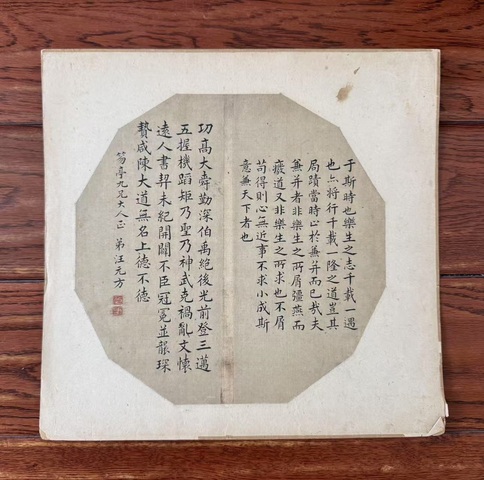 于斯時也樂生之志千載一遇
也亦將行千載一隆之道豈其
局蹟當時止於兼并而已哉夫
兼并者非樂生之所屑彊燕而
廢道又非樂生之所求也不屑
苟得則心無近事不求小成斯
意兼天下者也
功高大舜勤深伯禹絕後光前登三邁
五握機蹈矩乃聖乃神武克禍亂文懷
遠人書契未紀開闢不臣冠冕並襲琛
贄咸陳大道無名上德不德
笏亭九兄大人正 弟汪元方